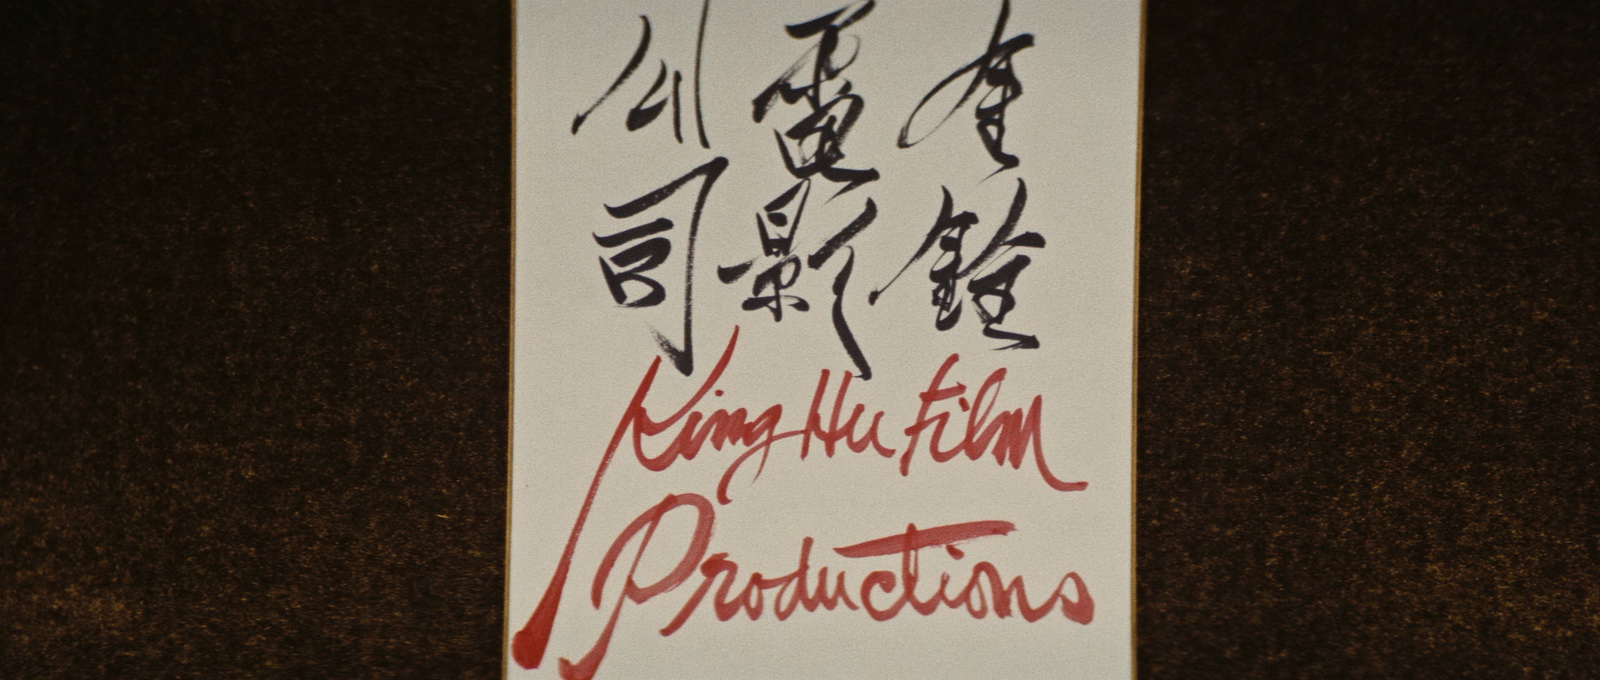 金銓
電影
公司
King Hu Film
Productions